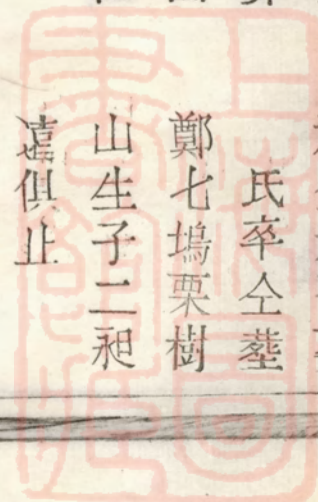 氏卒仝塟
鄭七塢栗樹
山生子二昶
遠俱止